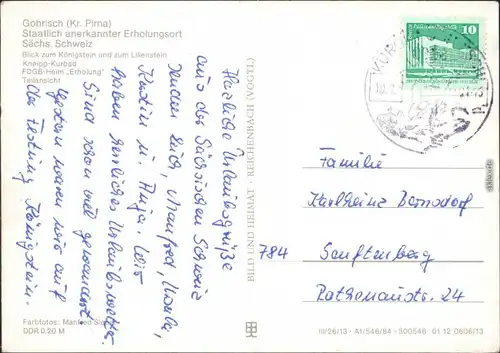 Gohrisch (Kr. Pirna)
Staatlich anerkannter Erholungsort
Sächs. Schweiz
Blick zum Königstein und zum Lilienstein
Kneipp-Kurbad
FDGB-Heim „Erholung"
Teilansicht
Herzliche Urlaubsgrüße
aus der Sächsischen Schweiz
senden Euch, Manfred, Ursula,
Katrin u. Anja. Wir
haben herrliches Urlaubswetter.
Sind schon viel gewandert.
Gestern waren wir auf
der Festung Königstein.
Farbfotos: Manfred
DDR 0,20 M
BILD UND HEIMAT · REICHENBACH (VOGTL)
10
DDR
Familie
Karlheinz
784 Senftenberg
Rathenaustr. 24
III/26/13 · A1/546/84 · 300546 01 12 0606/13